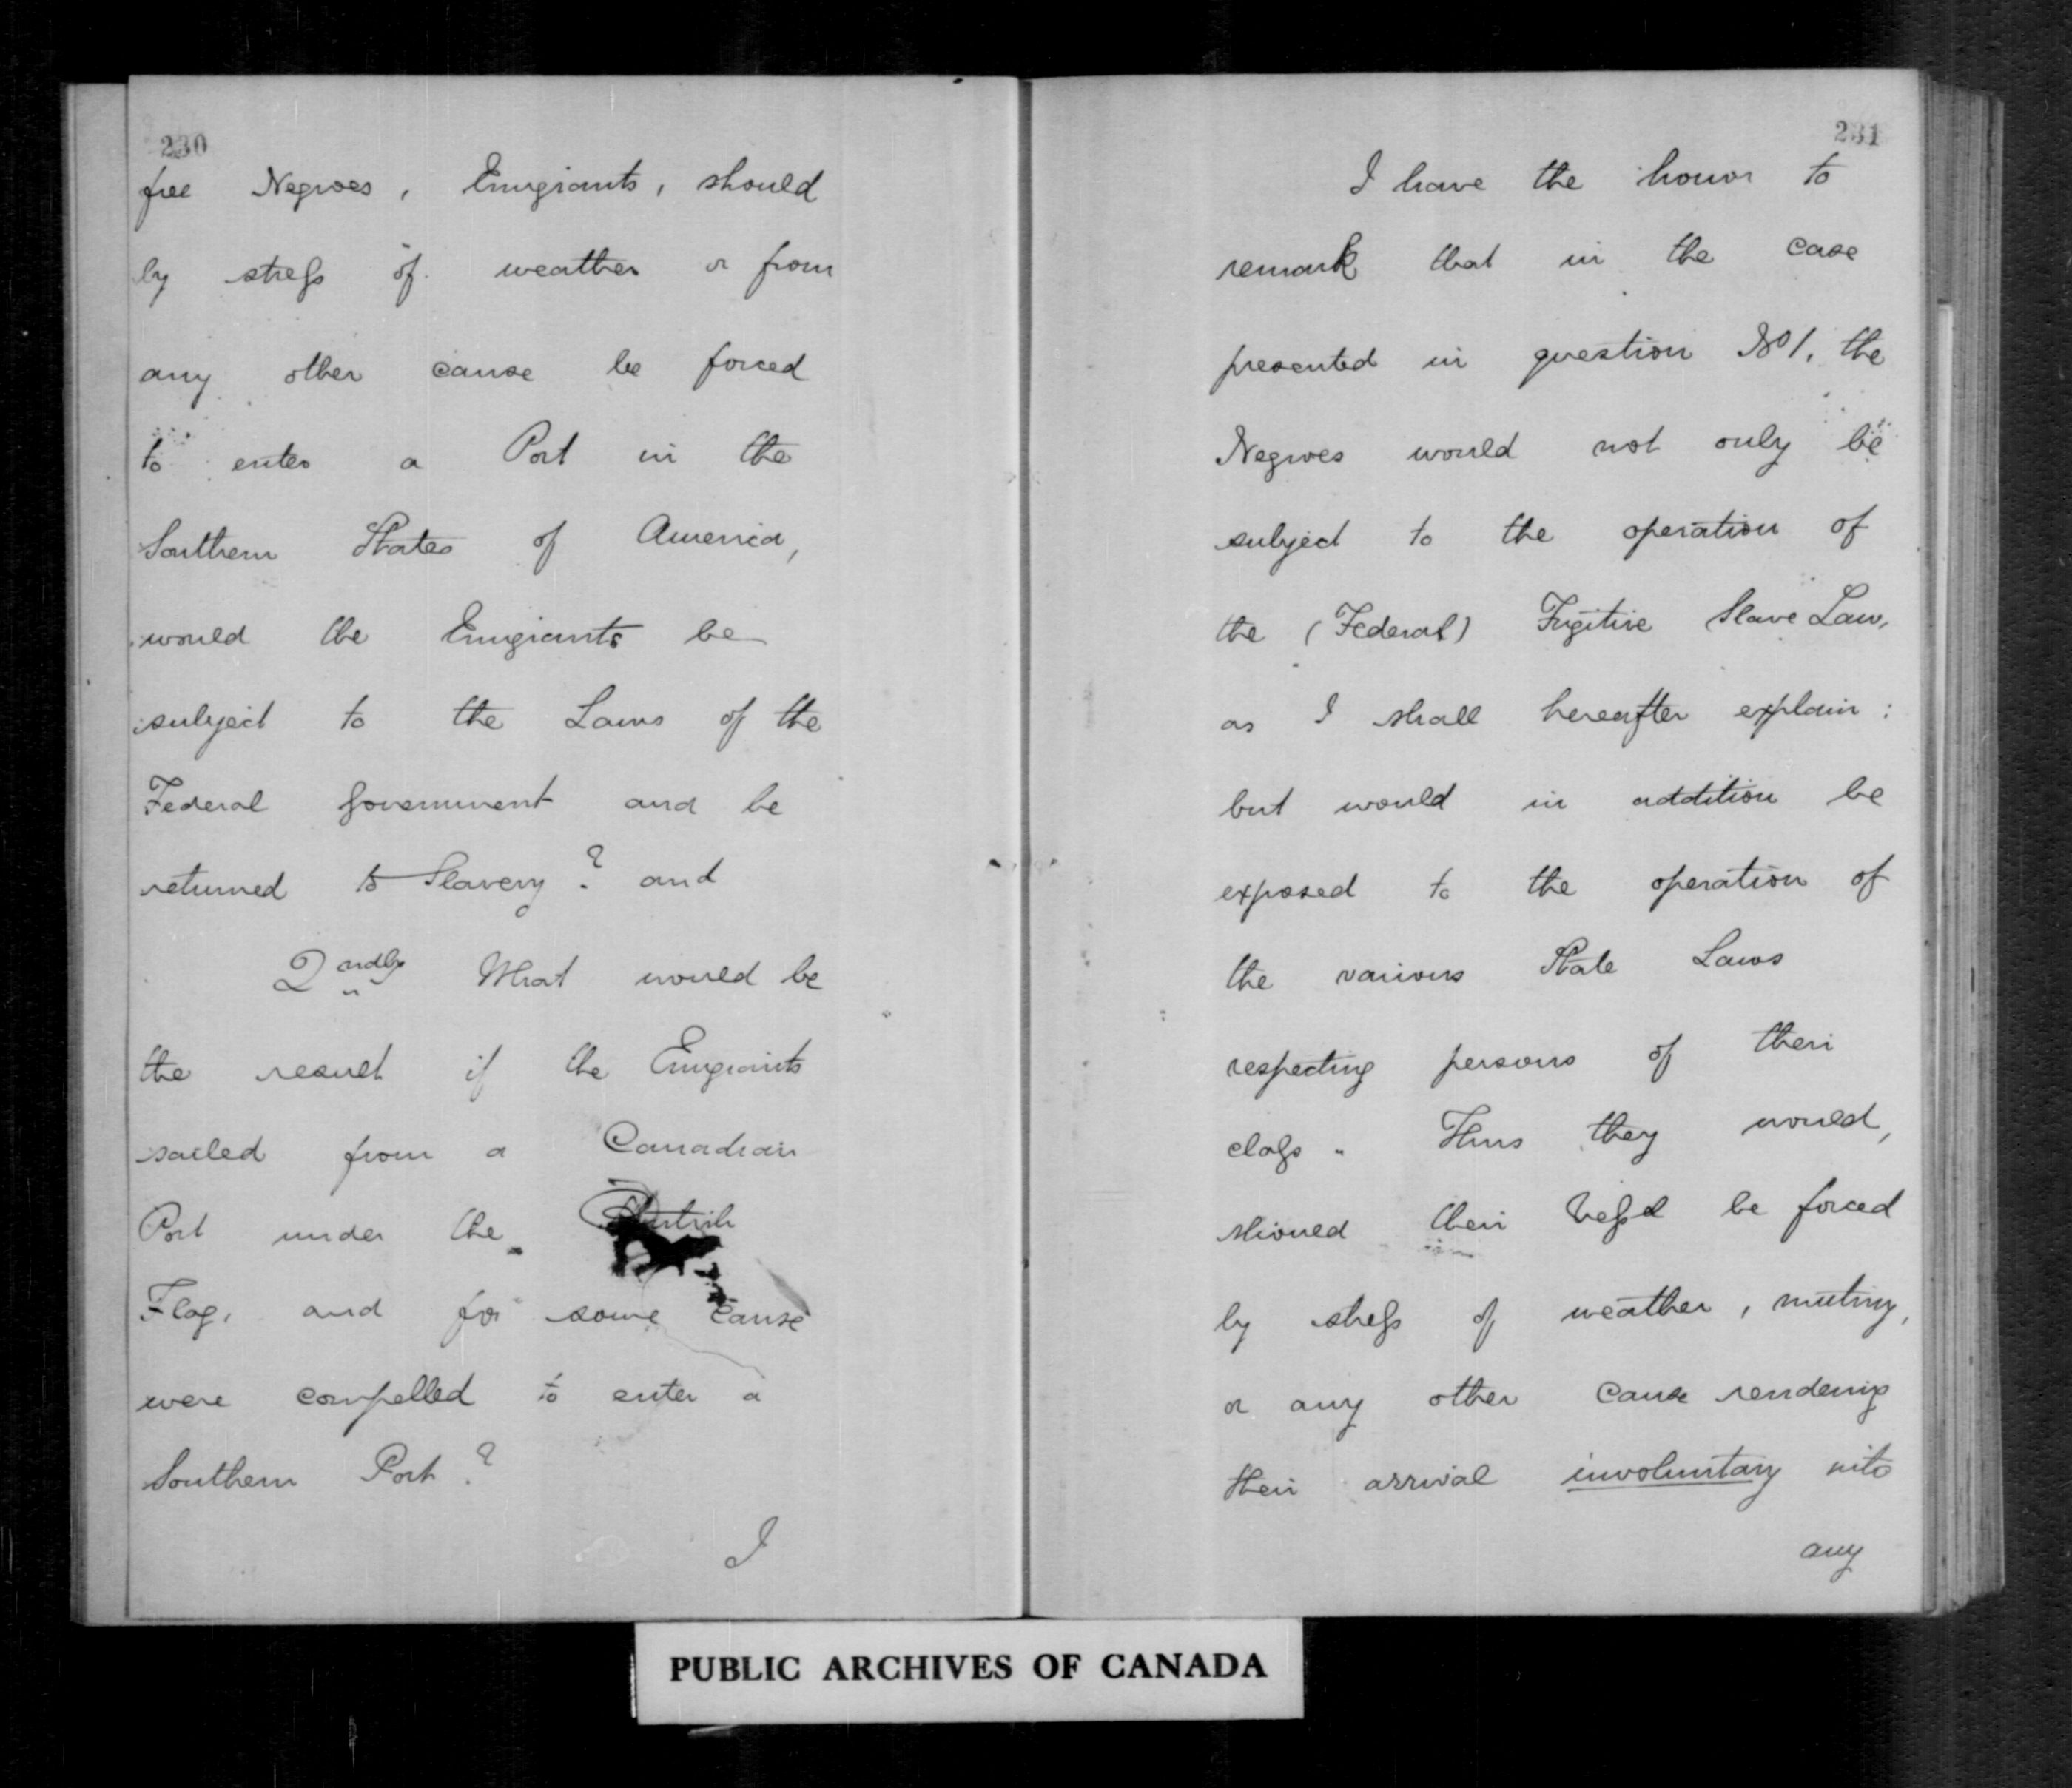 230
free Negroes, Emigrants, should
by stress of weather or from
any other cause be forced
to enter a Port in the
Southern States of America,
would the Emigrants be
subject to the Laws of the
Federal Government and be
returned to Slavery? and
2ndly What would be
the result if the Emigrants
sailed from a Canadian
Port under the British
Flag, and for some cause
were compelled to enter a
Southern Port?
I
231
I have the honor to
remark that in the case
presented in question No 1, the
Negroes would not only be
subject to the operation of
the (Federal) Fugitive Slave Law,
as I shall hereafter explain:
but would in addition be
exposed to the operation of
the various State Laws
respecting persons of their
class. Thus they would,
should their Vessel be forced
by stress of weather, mutiny,
or any other cause rendering
their arrival involuntary into
any
PUBLIC ARCHIVES OF CANADA